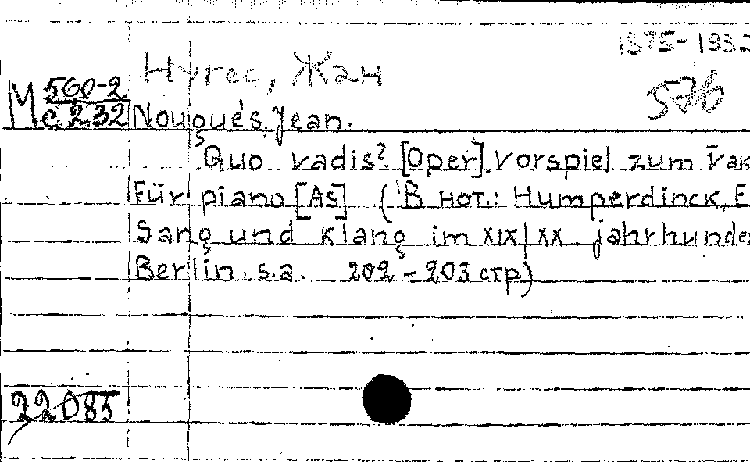 1875-1932
Нугес, Жан
576
М 560-2
с 232
Nouguès, Jean.
Quo vadis? [Oper]. Vorspiel zum V ак
Für piano [As] (В нот.: Humperdinck, E
Sang und Klang im XIX/XX. jahrhunde
Berlin. s.a. 202-203 стр)
22085